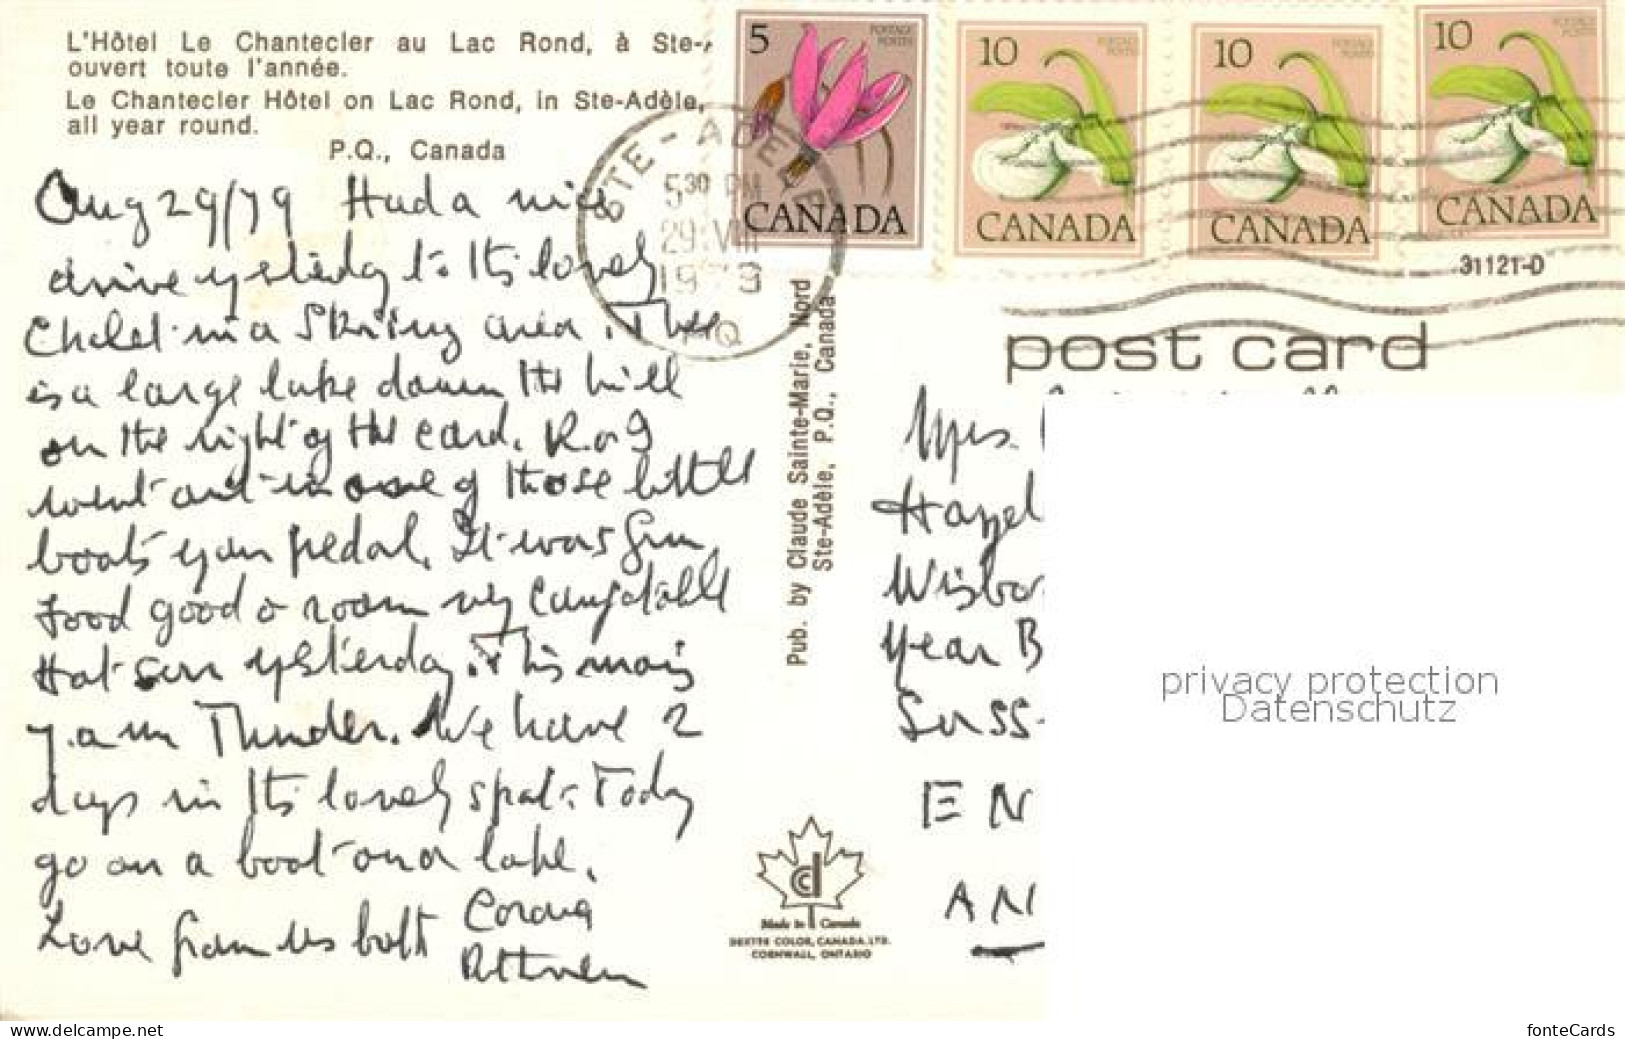 L'Hôtel Le Chantecler au Lac Rond, à Ste-
ouvert toute l'année.
Le Chantecler Hôtel on Lac Rond, in Ste-Adèle,
all year round.
P.Q., Canada
Aug 29/79 Had a nice
drive yesterday to this lovely
Chalet in a Skiing area. There
is a large lake down the hill
on the right of the card. R. & I
went out in one of those little
boats you pedal. It was fun
Food good & room very comfortable
Hot sun yesterday. This
7.am Thunder. We have 2
days in this lovely spot. Today
go on a boat lake.
Love from us both
5
POSTAGE
POSTES
CANADA
10
POSTAGE
POSTES
CANADA
10
POSTAGE
POSTES
CANADA
10
POSTAGE
POSTES
CANADA
STE-ADELE
5 30 PM
29 VIII
1979
31121-D
post card
Pub. by Claude Sainte-Marie, Nord
Ste-Adèle, P.Q., Canada
Mrs.
Hazel
Wisbo
Year B
Suss
EN
AN
Made in Canada
DEXTER COLOR, CANADA LTD.
CORNWALL, ONTARIO
privacy protection
Datenschutz
www.delcampe.net
fonteCards